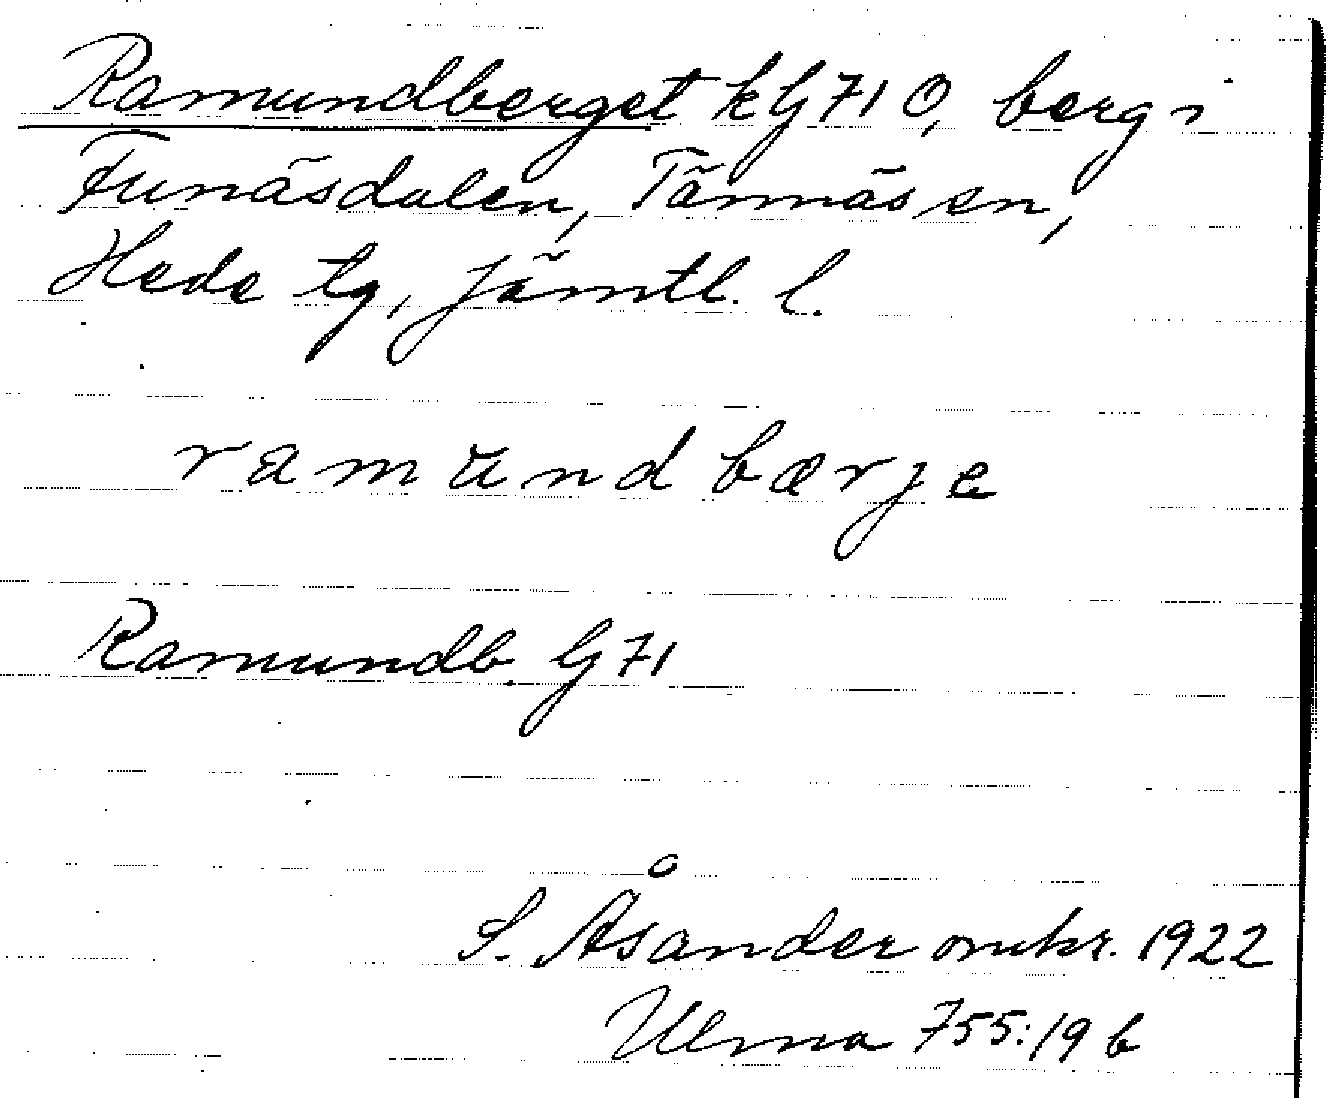 Ramundberget kG71 O, berg i
Funäsdalen, Tännäs sn,
Hede tg, Jämtl. l.
ramundbærje
Ramundb. G71
S. Åsander omkr. 1922
Ulma 755:19 b